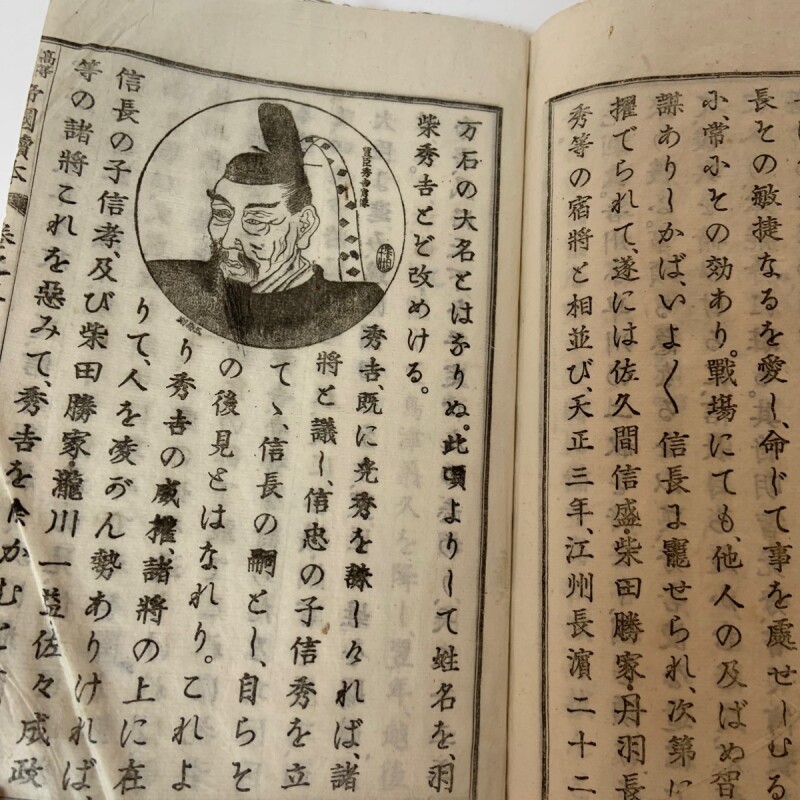 長その敏捷なるを愛し、命じて事を處せしむる
小、常小その効あり。戰場にても、他人の及ばぬ智
謀ありしかば、いよ〱信長に寵せられ、次第に
擢でられて、遂には佐久間信盛・柴田勝家・丹羽長
秀等の宿將と相並び、天正三年、江州長濱二十二
万石の大名とはなりぬ。此頃よりして姓名を、羽
柴秀吉とぞ改めける。
豊臣秀吉肖像
秀吉、既に光秀を誅しければ、諸
將と議し、信忠の子信秀を立
てゝ、信長の嗣とし、自らそ
の後見とはなれり。これよ
り秀吉の威權、諸將の上に在
りて、人を凌がん勢ありければ、
信長の子信孝、及び柴田勝家・瀧川一益・佐々成政
等の諸將これを惡みて、秀吉を除かむと
高等
帝國讀本
卷之